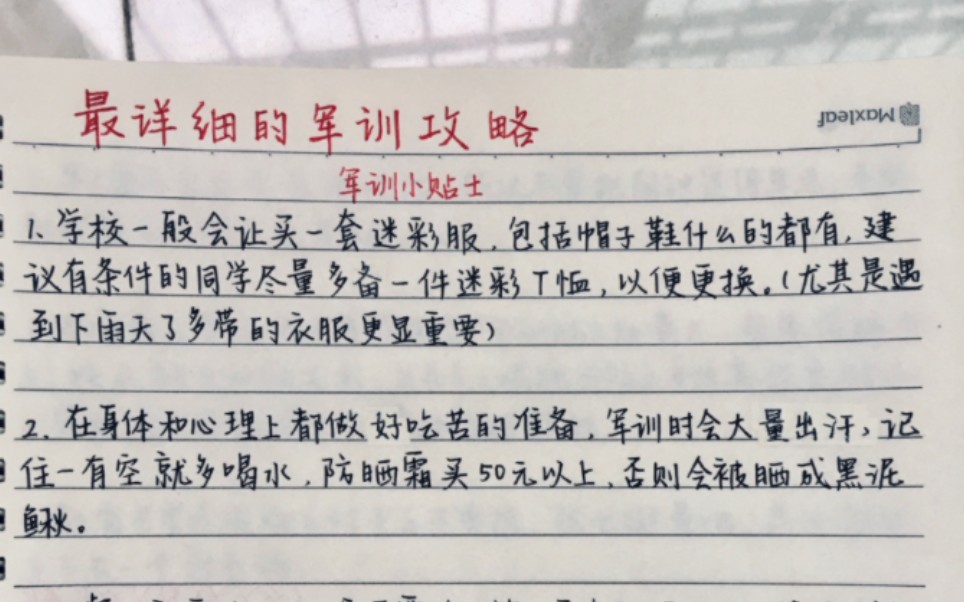 最详细的军训攻略
Maxleaf
军训小贴士
1、学校一般会让买一套迷彩服，包括帽子鞋什么的都有，建
议有条件的同学尽量多备一件迷彩T恤，以便更换。（尤其是遇
到下雨天了多带的衣服更显重要）
2、在身体和心理上都做好吃苦的准备，军训时会大量出汗，记
住一有空就多喝水，防晒霜买50元以上，否则会被晒成黑泥
鳅。